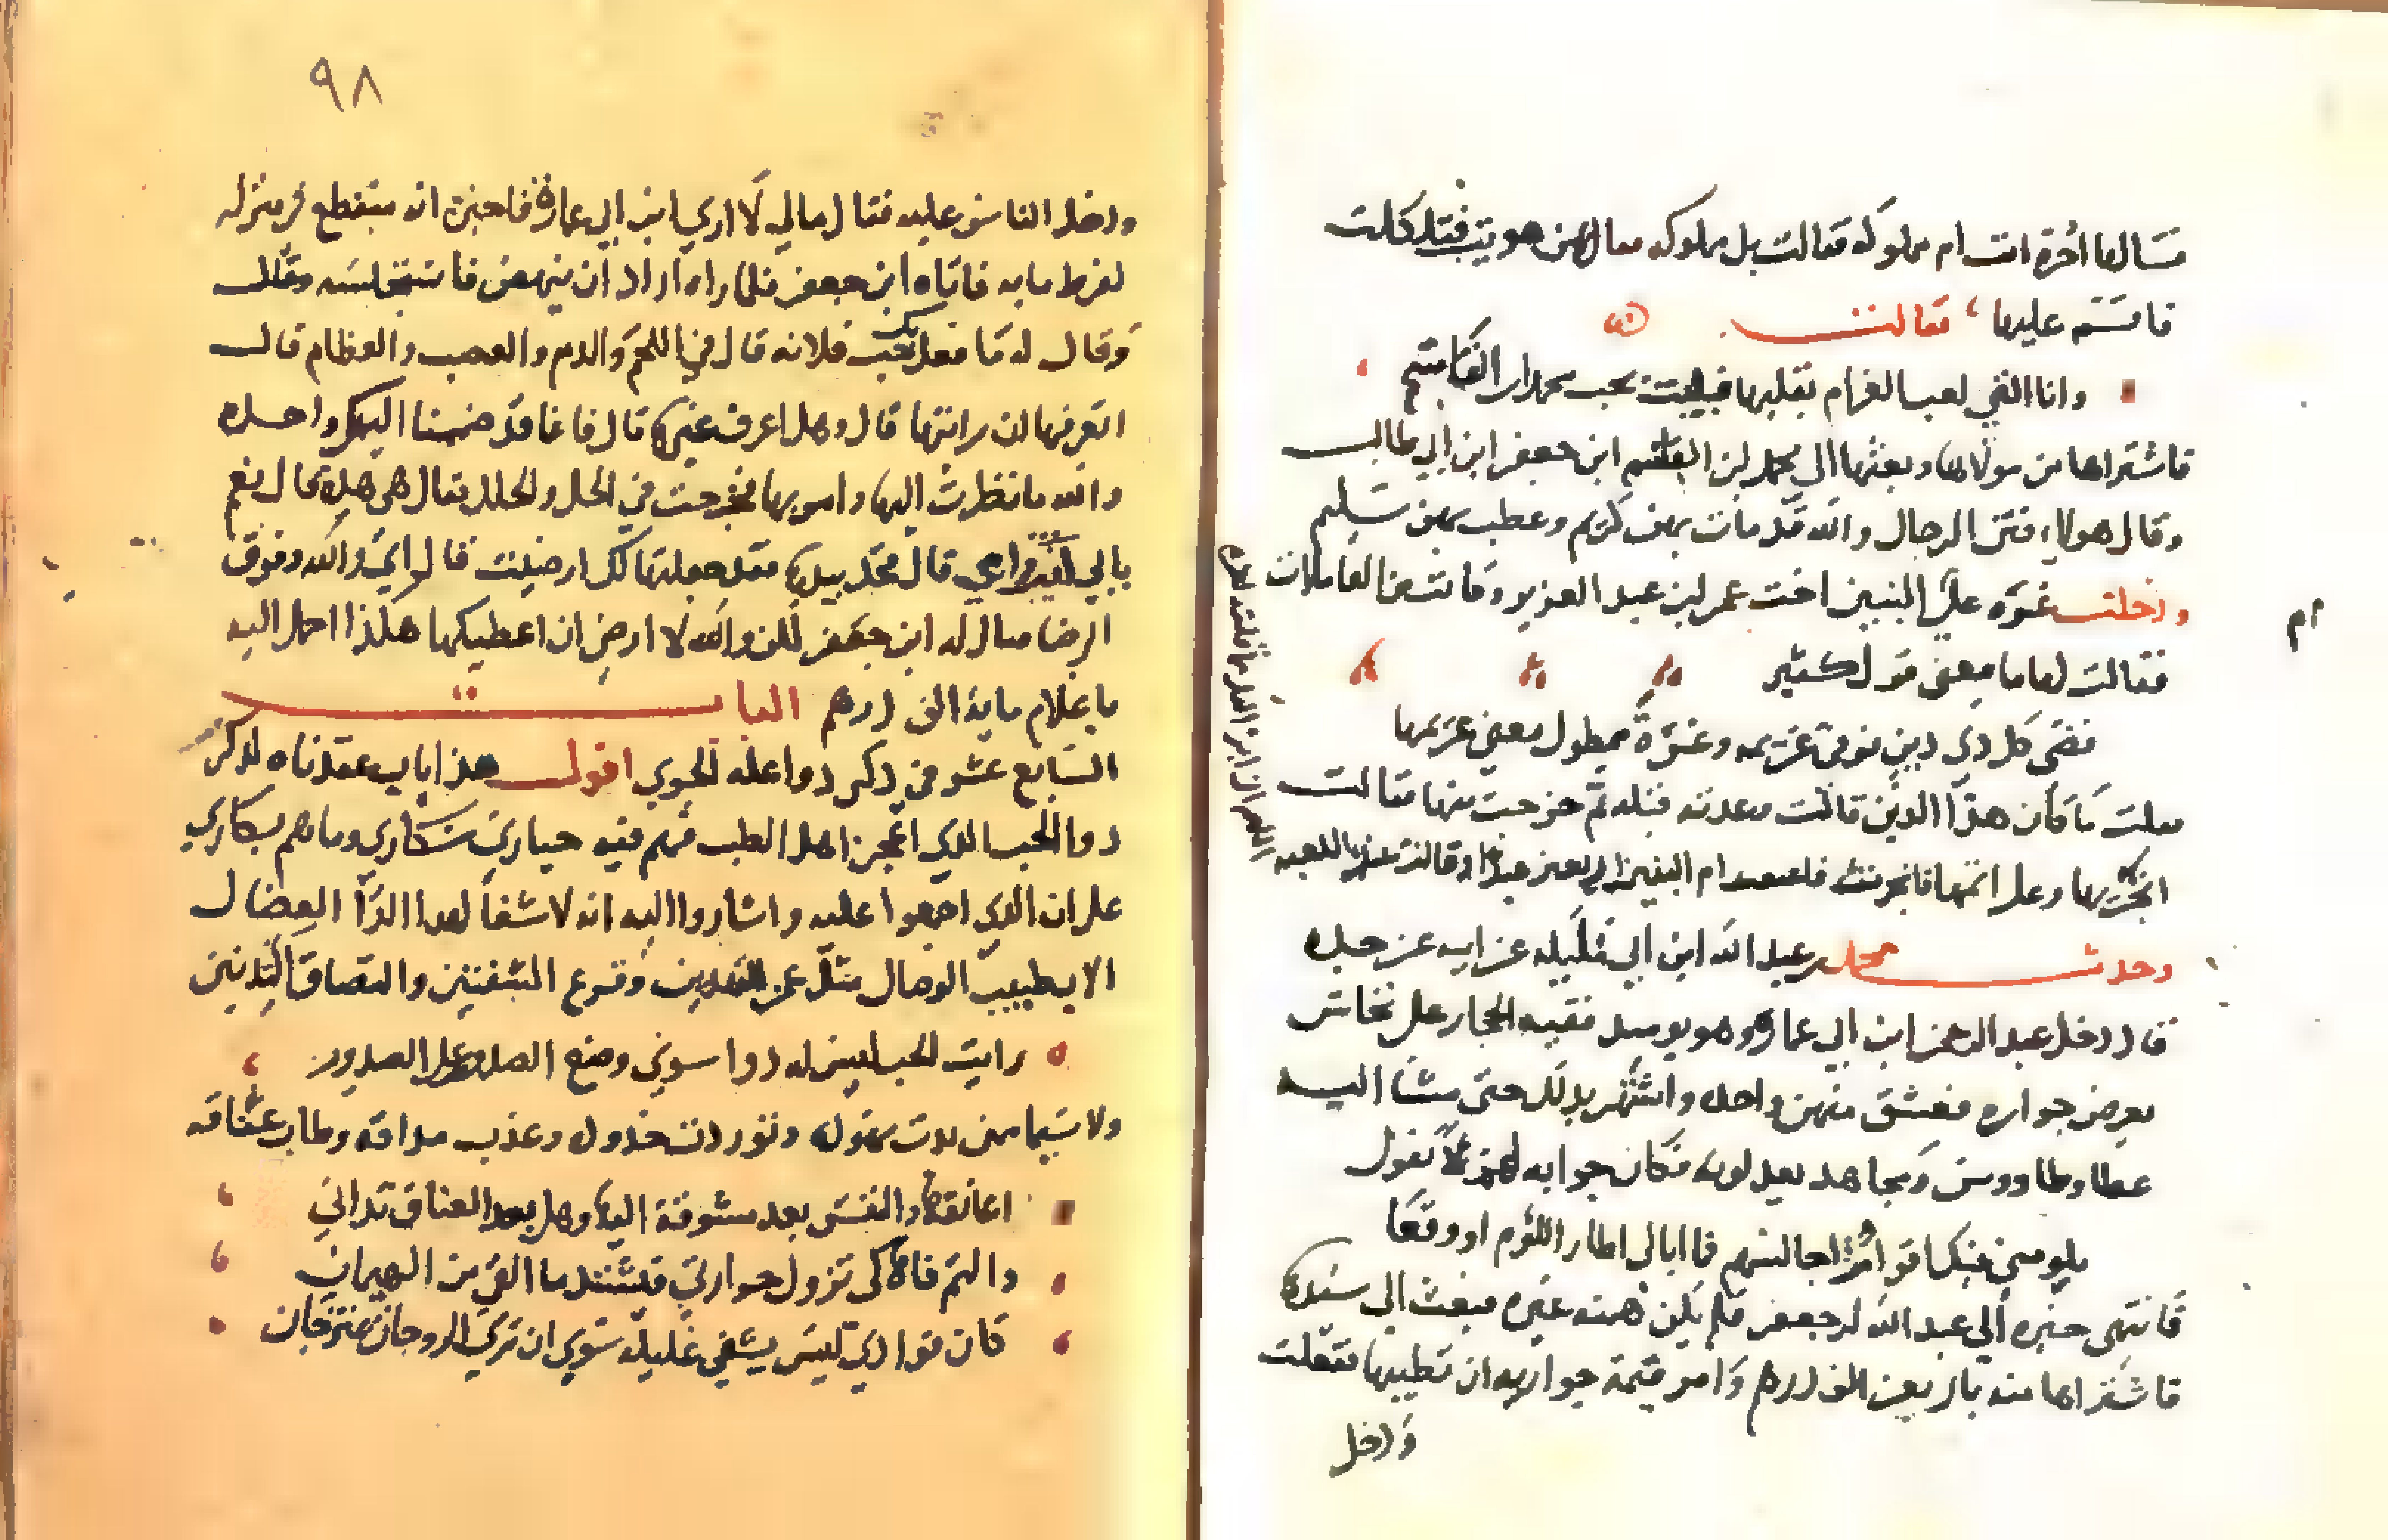 فسالها احرة انت ام مملوكه فقالت بل مملوكه فقال من هويتيه فتلكلت
فاقسم عليها فقالت
وانا التي لعب الغرام بقلبها فبليت بحب محمد ابن القاسم
فاشتراها من مولاها وبعثها الى محمد ابن القاسم ابن جعفر ابن ابي طالب
وقال هولاء فتن الرجال والله قد مات بهن كريم وعطب بهن سليم
ودخلت عزه على البنين اخت عمر ابن عبد العزيز وكانت من العاملات
ام
فقالت لها ما معنى قول كثير
قضى كل ذي دين فوفى غريمه وعزة ممطول معنى غريمها
فقلت ما كان هذا الدين قالت وعدته قبله ثم خرجت منها فقالت
انجزيها وعلى اثمها فانجزت فاعتقت ام البنين اربعين عبدا وقالت عند الكعبه
اللهم اني ابرا اليك مما قلت لعزه
وحدث محمد عبد الله ابن ابي مليكه عن ابيه عن جده
قال دخل عبد الرحمن ابن ابي عمار وهو يوميد فقيه الحجاز على نخاس
يعرض جواره فعشق منهن واحده واشتهر بذلك حتى مشا اليه
عطا وطاووس ومجاهد يعدلونه فكان جوابه لهم ان يقول
يلومني فيك اقوام اجالسهم فما ابالي اطار اللوم او وقعا
فانتهى خبره الى عبد الله ابن جعفر فلم يكن همته غيره فبعث الى سيدها
فاشتراها منه باربعين الف درهم وامر قيمة جواريه ان تطيبها ففعلت
ودخل
٩٨
ودخل الناس عليه فقال مالي لا اري ابن ابي عمارة فاخبره انه منقطع في منزله
لفرط ما به فاتاه ابن جعفر فلما راه اراد ان ينهض فاستجلسه وقال
وقال له ما فعل بك حب فلانه قال في اللحم والدم والعصب والعظام قال
اتعرفها ان رايتها قال وهل اعرف غيرها قال فاننا قد ضممنا اليك واحده
والله ما نظرت اليها وامر بها فخرجت في الحلي والحلل فقال هي هذه قال نعم
بابي وامي قال فخذ بيدها فقد جعلتها لك ارضيت قال اي والله وفوق
الرضا فقال له ابن جعفر لكن والله لا ارضى ان اعطيكها هكذا احمل اليه
يا غلام ماية الف درهم الباب
السابع عشر في ذكر دوا علة الجوي اقول هذا باب عقدناه لذكر
دوا الحب الذي اعجز اهل الطب فهم فيه حياري سكاري وما هم بسكاري
على ان الذي اجمعوا عليه واشاروا اليه انه لا شفا لهذا الدا العضال
الا بطبيب الوصال مثل غمز اليدين وقرع الشفتين والتصاق الثديين
رايت الحب ليس له دوا سوي وضع الصدور على الصدور
ولا سيما ممن بدت نهوده وتوردت خدوده وعذب مداقه وطاب عناقه
اعانقها والنفس بعد مشوقة اليها وهل بعد العناق تداني
والثم فاها كي تزول حرارتي فيشتد ما القى من الهيمان
كان فوادي ليس يشفي غليله سوي ان تري الروحان يمتزجان